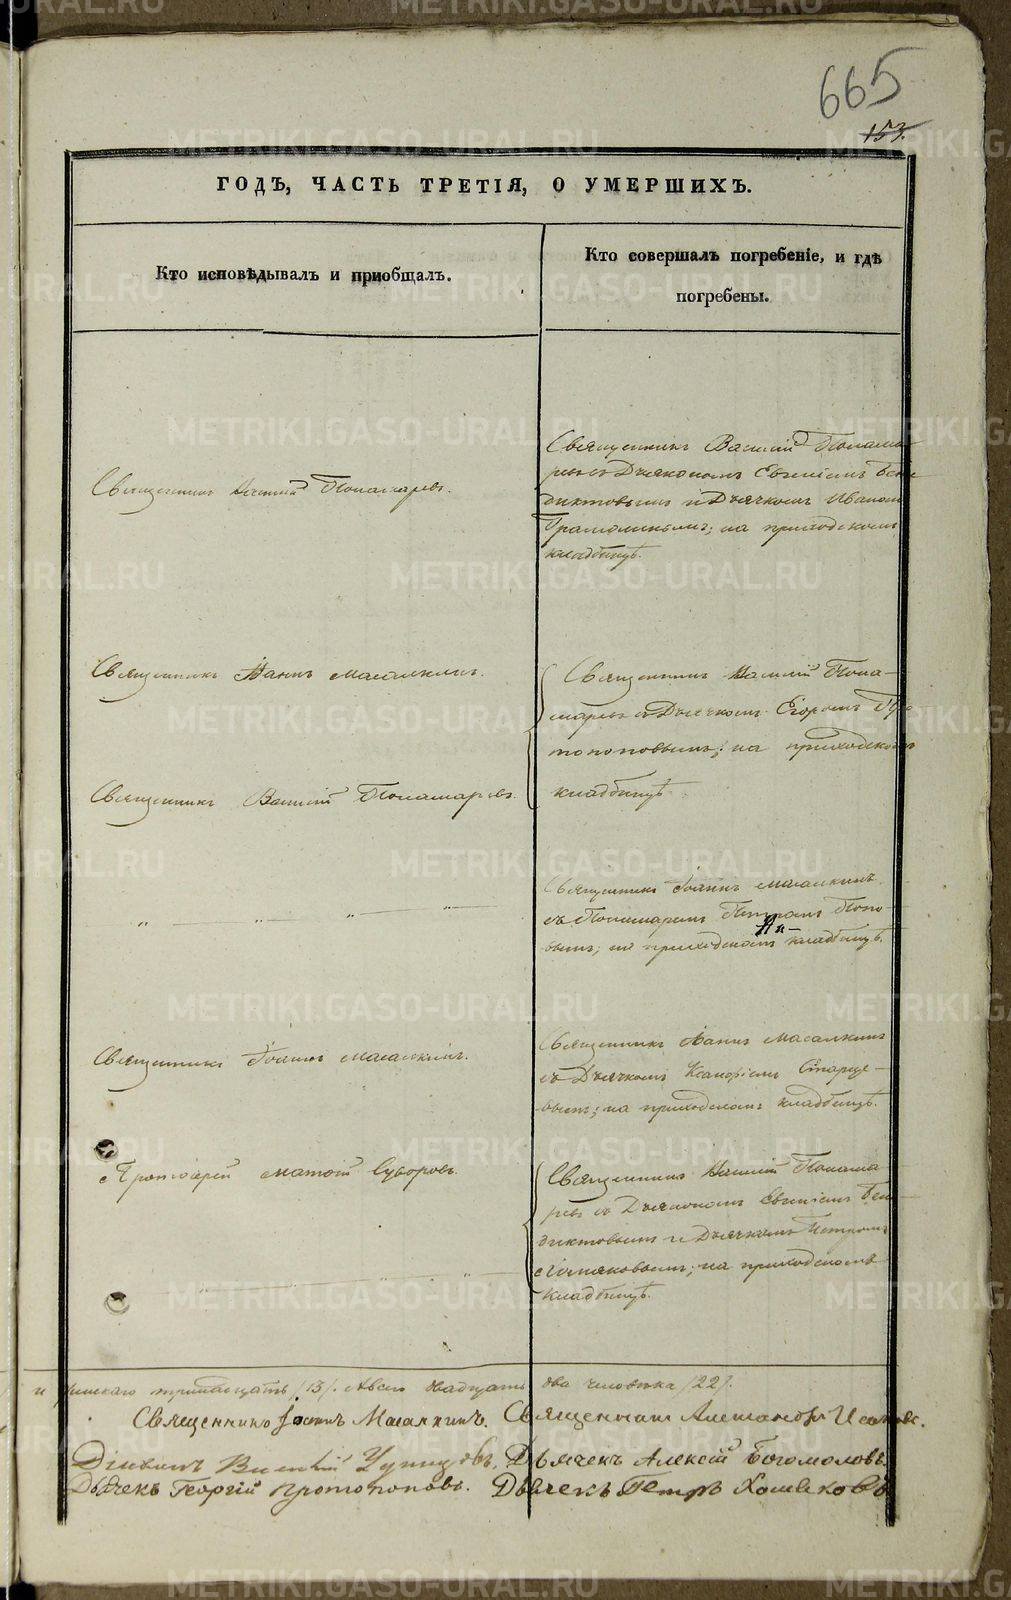 665
153.
ГОДЪ, ЧАСТЬ ТРЕТІЯ, О УМЕРШИХЪ.
Кто исповѣдывалъ и пріобщалъ.
Кто совершалъ погребеніе, и гдѣ
погребены.
Священникъ Василій Пономаревъ.
Священникъ Василій Понома-
ревъ съ Дьякономъ Евгеніемъ Бене
диктовымъ и Дьячкомъ Иваномъ
на приходскомъ
кладбищѣ.
Священникъ Іоаннъ Масалкинъ.
Священникъ Василій Пономаревъ.
Священникъ Василій Поно-
маревъ съ Дьячкомъ Егоромъ Про
топоповымъ; на приходскомъ
кладбищѣ.
„ — „ — „ — „ —
Священникъ Іоаннъ Масалкинъ
съ Пономаремъ Петромъ Попо-
вымъ; на приходскомъ кладбищѣ.
Священникъ Іоаннъ Масалкинъ.
Священникъ Іоаннъ Масалкинъ
съ Дьячкомъ Старце-
вымъ; на приходскомъ кладбищѣ.
Протоіерей Матѳій Суворовъ.
Священникъ Василій Понома
ревъ съ Дьякономъ Евгеніемъ Бене
диктовымъ и Дьячкомъ Петромъ
на приходскомъ
кладбищѣ.
и женскаго тринадцать /13/. Всего двадцать два человѣка /22/.
Священникъ Іоаннъ Масалкинъ. Священникъ Александръ
Діаконъ Дьячекъ Алексій Богомоловъ.
Дьячекъ Георгій Протопоповъ. Дьячекъ Петръ Хомяковъ
METRIKI.GASO-URAL.RU